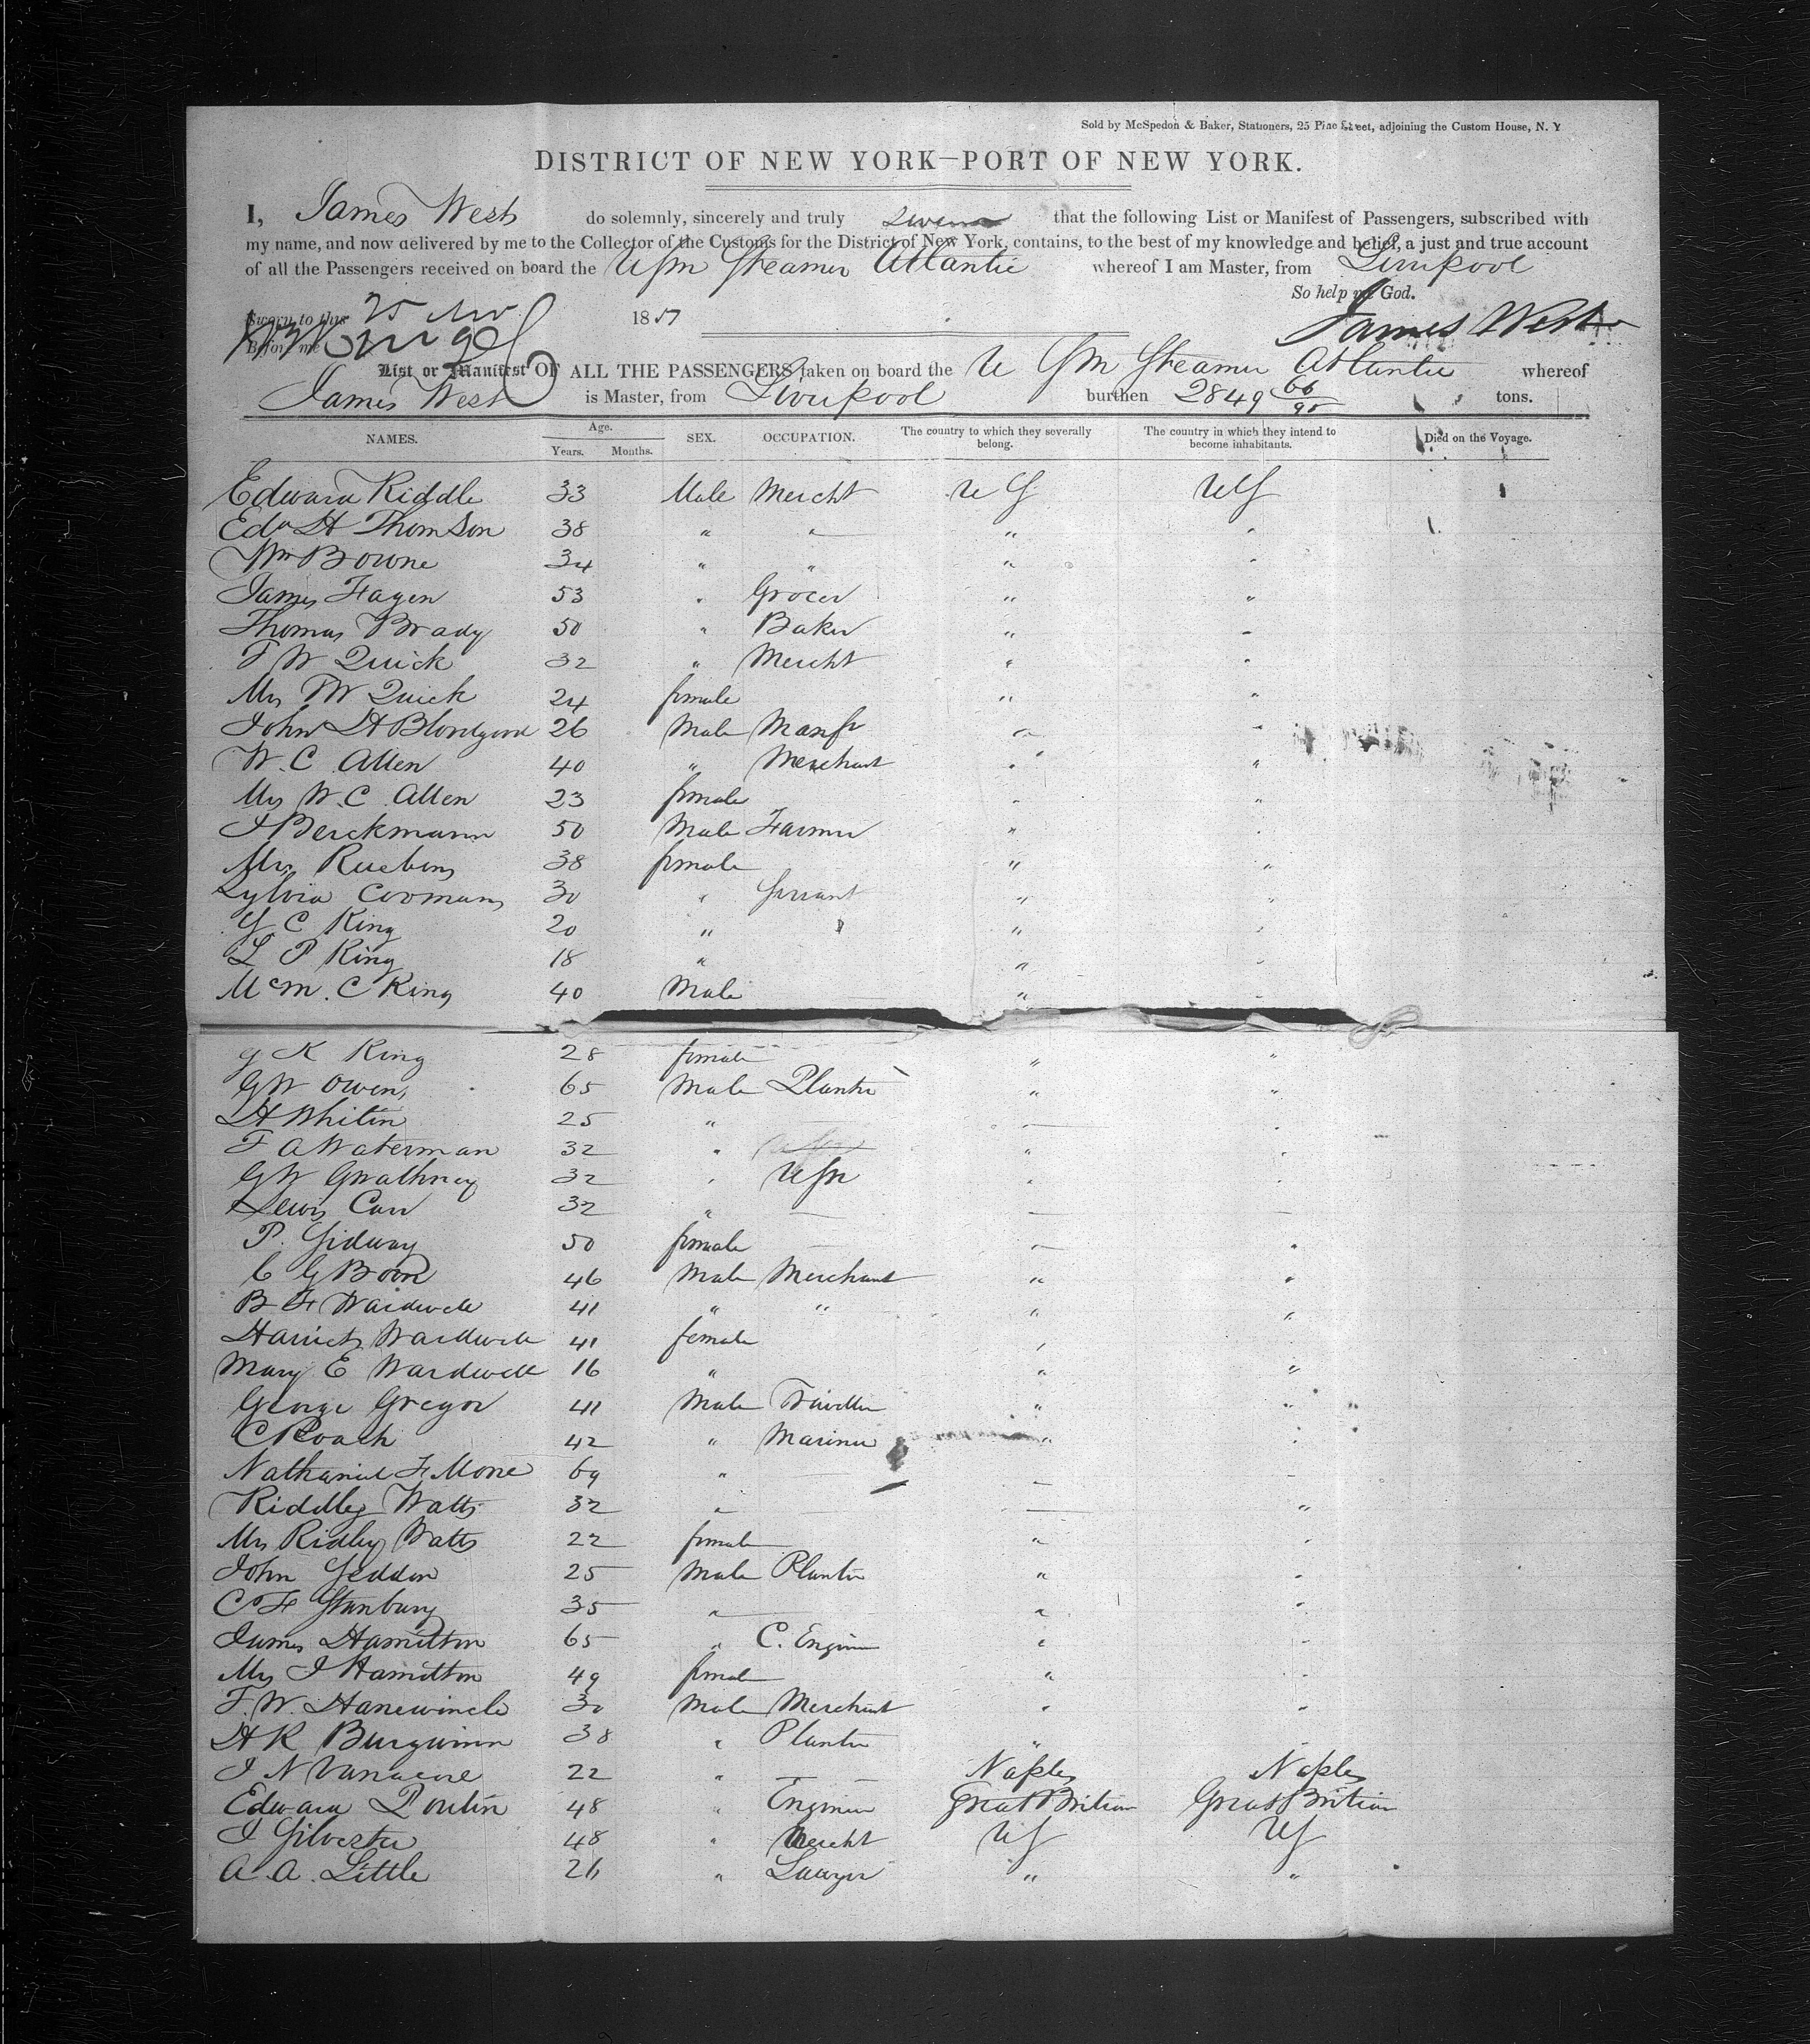 Sold by McSpedon & Baker, Stationers, 25 Pine Street, adjoining the Custom House, N. Y
DISTRICT OF NEW YORK—PORT OF NEW YORK.
I, James West do solemnly, sincerely and truly swear that the following List or Manifest of Passengers, subscribed with
my name, and now delivered by me to the Collector of the Customs for the District of New York, contains, to the best of my knowledge and belief, a just and true account
of all the Passengers received on board the USM Steamer Atlantic whereof I am Master, from Liverpool
So help me God.
Sworn to this 25 Nov 1851
James West
Before me
List or Manifest OF ALL THE PASSENGERS taken on board the U SM Steamer Atlantic whereof
James West is Master, from Liverpool burthen 2849 66/95 tons.
NAMES. Age. SEX. OCCUPATION. The country to which they severally belong. The country in which they intend to become inhabitants. Died on the Voyage.
Years. Months.
Edward Riddle 33 Male Mercht US US
Edw H Thomson 38 " " " "
Wm Bowne 34 " " " "
James Fagen 53 " Grocer " "
Thomas Brady 50 " Baker " "
F W Quick 32 " Mercht " "
Mrs F W Quick 24 female " "
John H Bloodgood 26 Male Manfr " "
W. C. Allen 40 " Merchant " "
Mrs W. C. Allen 23 female " "
J Berckmann 50 Male Farmer " "
Mrs Ruebens 38 female " "
Sylvia Coomans 30 " Servant " "
S C King 20 " " "
L P King 18 " " "
McM. C King 40 Male " "
G K King 28 female " "
G W Owens 65 Male Planter " "
H Whitin 25 " — — "
F A Waterman 32 " " "
G W Gwathmey 32 " USN " "
Lewis Carr 32 " — — —
P. Sidway 50 female — — "
C G Boon 46 Male Merchant " "
B F Wardwell 41 " " " "
Harriet Wardwell 41 female " "
Mary E Wardwell 16 " " "
George Gregor 41 Male Traveller " "
C Roach 42 " Mariner " "
Nathaniel F Mone 69 " — — —
Riddley Watts 32 " — — "
Mrs Ridley Watts 22 female " "
John Seddon 25 Male Planter " "
C F Stanbury 35 " " "
James Hamilton 65 " C. Engineer " "
Mrs J Hamilton 49 female " "
F. W. Hanewincle 30 Male Merchant " "
H K Burgwinn 38 " Planter "
J N 22 " — Naples Naples
Edward 48 " Engineer Great Britian Great Britian
J Silvester 48 " Mercht US US
A. A. Little 26 " Lawyer " "